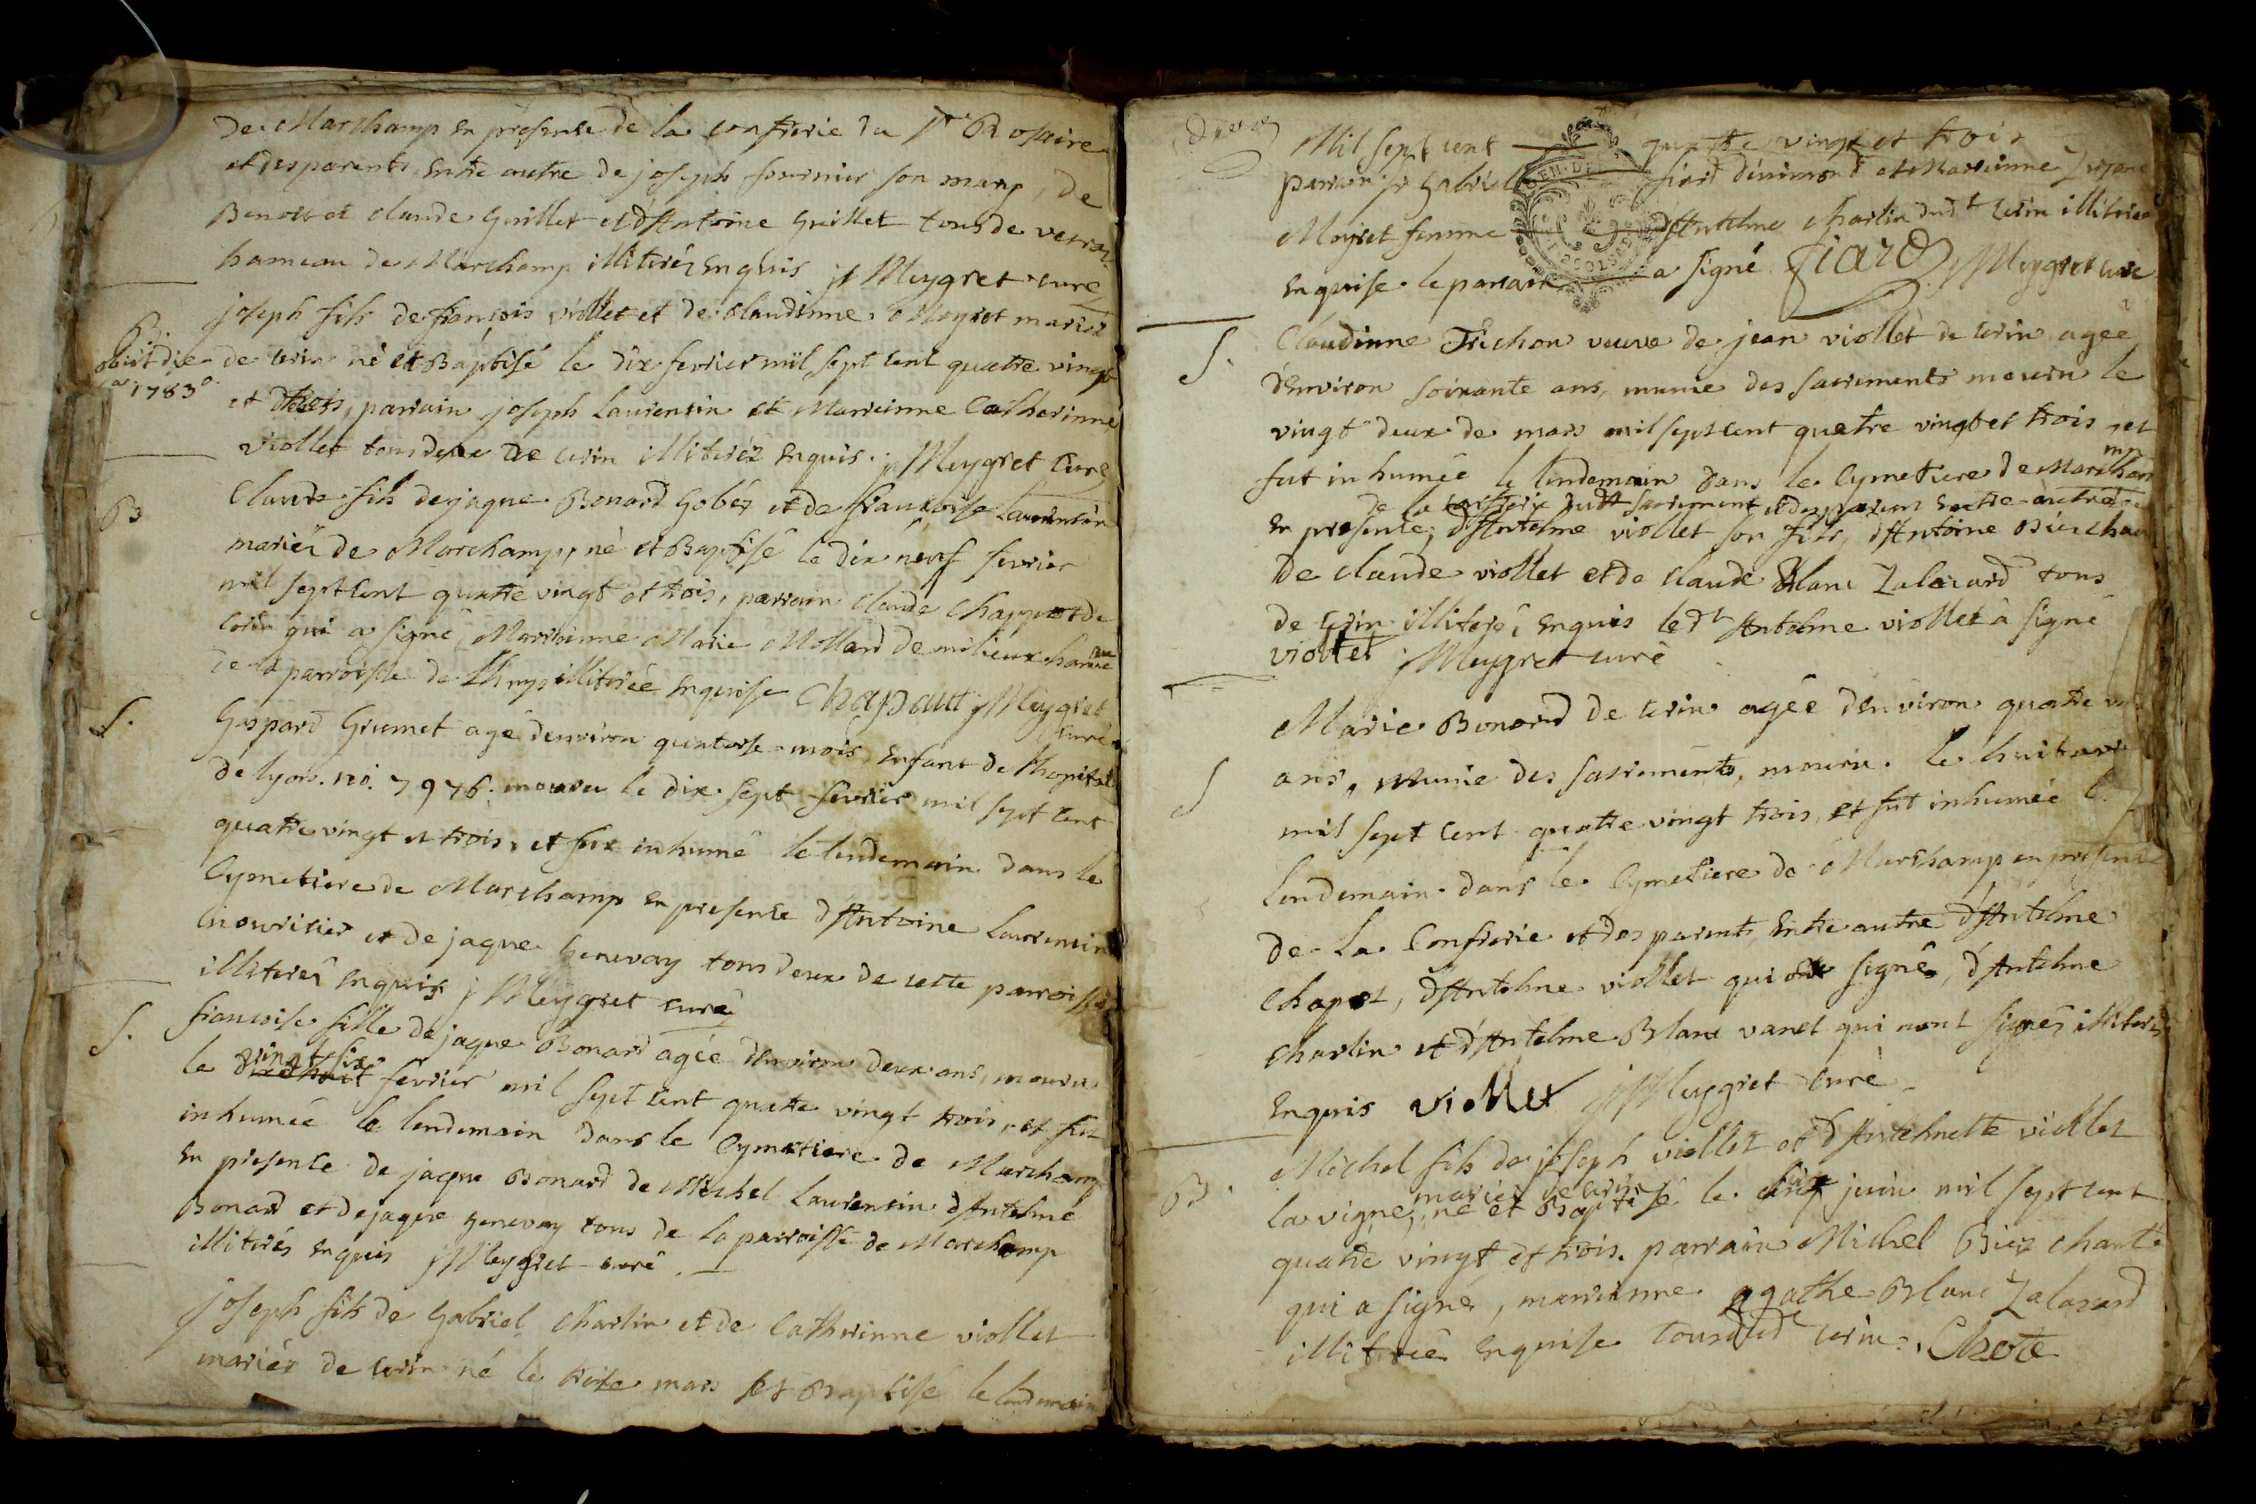 de Marchamp en présence de la confrerie du St Rosaire
et des parents entre autre de joseph fournier son mary, de
Benoit et claude Guillet et d'Antoine Guillet tous de
hameau de Marchamp illiterés enquis j Meygret curé
joseph fils de francois viollet et de claudinne Meyret mariés
B.
obiit die
1783
de cerin né et Baptisé le dix fevrier mil sept cent quatre vingt
et trois, parrain joseph Laurensin et Marreinne Catherinne
viollet tous deux de cerin illiteréz enquis. j Meygret Curé
B
Claude fils de jaque Bonard Gobéz et de francoise Laurensin
mariéz de Marchamp, né et Baptisé le dix neuf fevrier
mil sept cent quatre vingt et trois, parrain claude Chappot de
Cerin qui a signé Marreinne Marie Mollard de milieux hameau
de la parroisse de illiterée enquise Chapaut j Meygret
curé
S.
Gaspard Grumet agé denviron quatorse mois enfant de l'hopital
de lyon. no. 7976. mouru le dix sept fevrier mil sept cent
quatre vingt et trois, et fut inhumé le lendemain dans le
Cymetiere de Marchamp en presence d'Antoine Laurensin
nourisier et de jaque Genevay tous deux de cette parroisse
illiterés enquis j Meygret curé
S.
francoise fille de jaque Bonard agée d'environ deux ans, mouru
vingt six
le dixhuit fevrier mil sept cent quatre vingt trois, et fut
inhumée le lendemain dans le Cymetiere de Marchamp
en presence de jaque Bonard de Michel Laurensin d'Antelme
Bonard et de jaque Genevay tous de la parroisse de Marchamp
illiterés enquis j Meygret curé
joseph fils de Gabriel Charlin et de Catherinne viollet
mariés de cerin né le mars et Baptise le lendemain
Mil sept cent quatre vingt et trois
parrain Sr Gabriel fiard d'inimond et Marreinne
Meyret femme d'Antelme charlin dudt cerin illiterée
enquise le parrain a signé fiard j Meygret curé
S.
Claudinne Trichon veuve de jean viollet de cerin agée
d'environ soixante ans, munie des sacrements mouru le
vingt deux de mars mil sept cent quatre vingt et trois et
fut inhumée le lendemain dans le Cymetiere de Marchamp
de la confrerie du St sacrement et des parens entre autre
en presence, d'Antelme viollet son fils, d'Antoine
de claude viollet et de claude Blanc Zalavard tous
de cerin illiteré enquis le dt Antelme viollet à signé
viollet j Meygret curé
S
Marie Bonard de cerin agée d'environ quatre
ans, munie des sacrements, mouru. le huit
mil sept cent quatre vingt trois, et fut inhumée le
lendemain dans le Cymetiere de Marchamp en presence
de la Confrerie et des parents entre autre d'Antelme
Chapot, d'Antelme viollet qui ont signé, d'Antelme
charlin et d'Antelme Blanc vanet qui n'ont signés illiterés
enquis viollet j Meygret curé
B.
Michel fils de joseph viollet et d'Antelmette viollet
mariés de cerin
la vigne, né et Baptisé le juin mil sept cent
quatre vingt et trois. parrain Michel
qui a signé, marreinne agathe Blanc Zalavard
illiterée enquise tous dudt cerin.